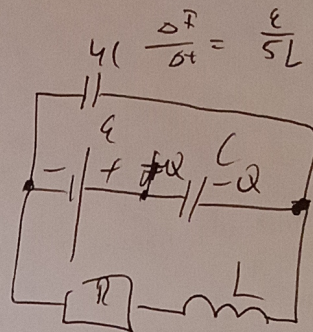 4C ΔI/Δt = ε/5L
ε C
- + +Q -Q
R L